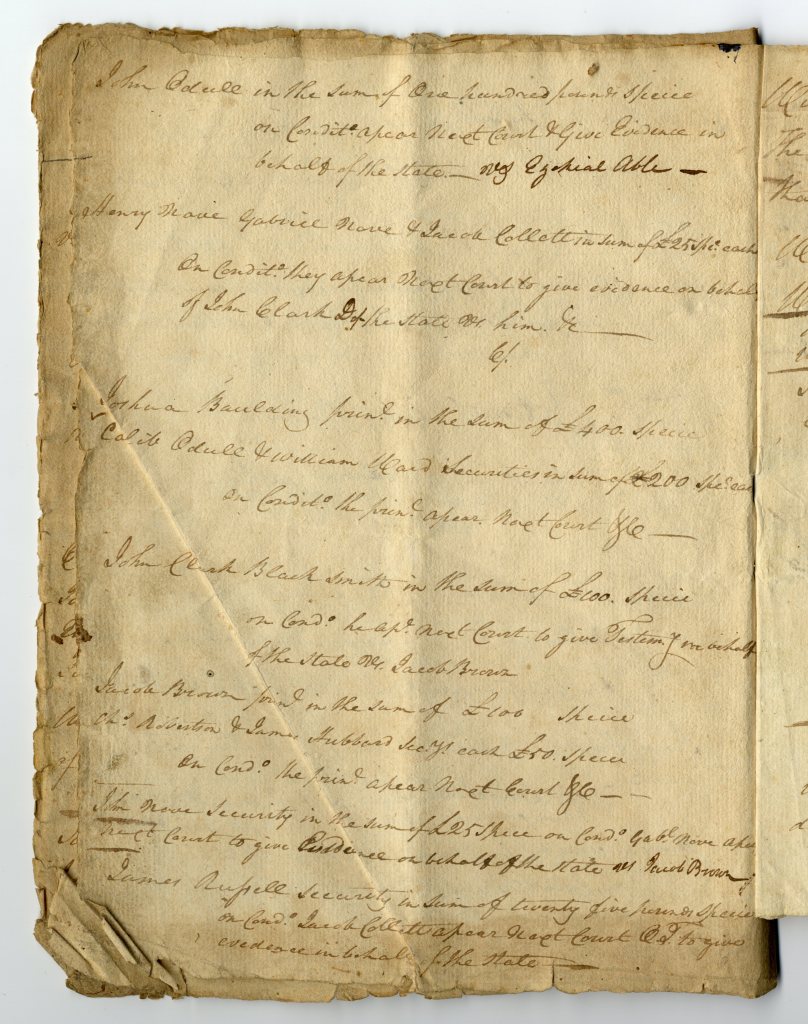 John Odull in the sum of One hundred pounds Speice
on Condit.o apear Next Court & Give Evidence in
behalf of the State — vs Ezekial Able —
Henry Nave Gabriel Nave & Jacob Collett in sum of £25 Spe. each
On Condit.o they apear Next Court to give evidence on behal
of John Clark D of the State vs him. &c
C/.
Joshua Baulding prin.l in the sum of £400. Speice
Calib Odull & William Ward Securities in sum of £200 Spe.
on Condit.o the prin.l apear. Next Court &C —
John Clark Black Smith in the sum of £100. Speice
on Cond.o he ap.r Next Court to give Testem.y on behalf
of the State vs. Jacob Brown
Jacob Brown prin.l in the sum of £100 Speice
Ch.s Robertson & James Hubbard Sec.ys each £50. Speice
On Cond.o the prin.l apear Next Court &C — –
John Nave Security in the sum of £25 Speice on Cond.o Gab.l Nave apear
Next Court to give Evidence on behalf of the State vs Jacob Brown
James Russell security in sum of twenty five pounds Speice
on Cond.o Jacob Collett apear Next Court to give
evedence in behalf of the State —